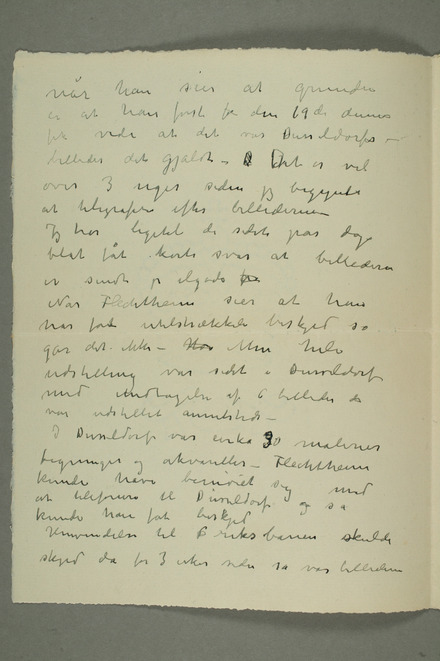 når han sier at grunden
er at han først på den 19de dennes
fik vide at det var Dusseldorfer –
billeder det gjaldt – Det er vel
over 3 uger siden jeg begyndte
at telegrafere efter billederne
Jeg har ligetil de sidste par dage
blot fåt korte svar at billederne
er sendt
Når Flechtheim sier at han
har fåt utilstrækkelig beskjed så
går det ikke – Min hele
udstilling var sidst i Dusseldorf
med undtagelse af 6 billeder der
var udstillet annetsteds –
I Dusseldorf var cirka 30 malerier
tegninger og akvareller – Flechtheim
kunde have bemøiet sig med
at telefonere til Dusseldorf og så
kunde han fåt beskjed
Henvendelse til riksbanen skulde
skjed da for 3 uker siden så var billederne